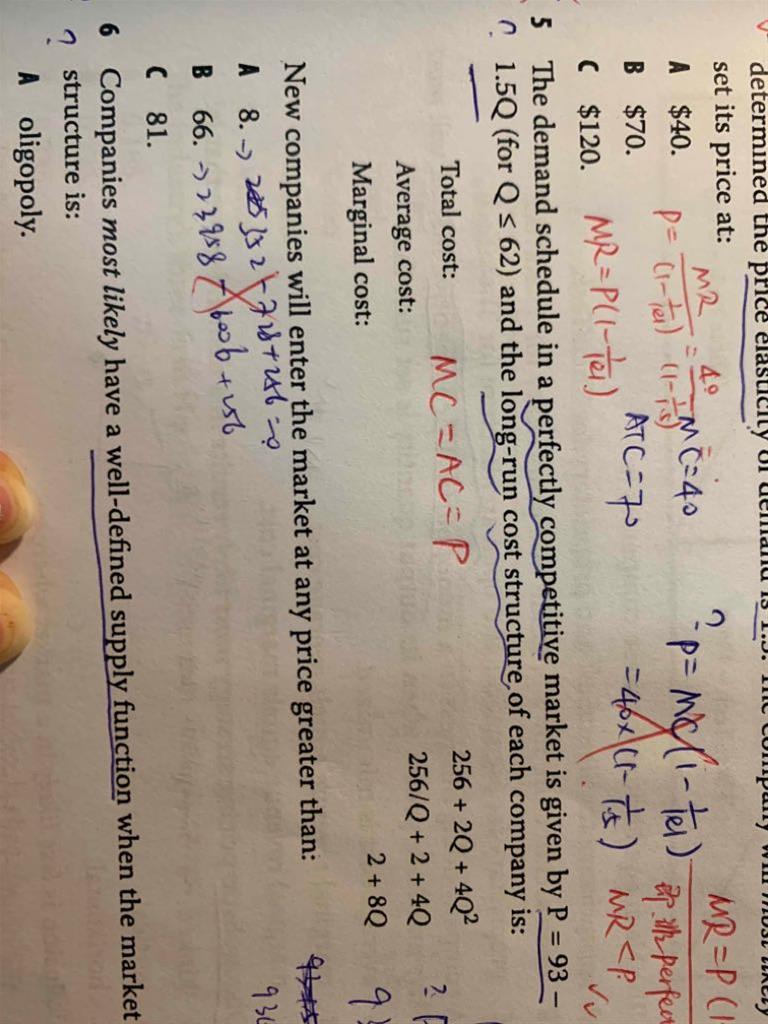 determined the price elasticity of demand is 1.5. The company will most likely
set its price at:
A $40.
B $70.
C $120.
P = MR/(1-1/|e|) = 40/(1-1/1.5)
MC = 40
ATC = 70
MR = P(1-1/|e|)
? - P = MC(1-1/|e|)
= 40×(1-1/1.5)
MR = P(1
MR < P
5 The demand schedule in a perfectly competitive market is given by P = 93 –
? 1.5Q (for Q ≤ 62) and the long-run cost structure of each company is:
Total cost: 256 + 2Q + 4Q²
Average cost: 256/Q + 2 + 4Q
Marginal cost: 2 + 8Q
MC = AC = P
New companies will enter the market at any price greater than:
A 8.
B 66. → 23958 - 6006 + 256
C 81.
6 Companies most likely have a well-defined supply function when the market
? structure is:
A oligopoly.